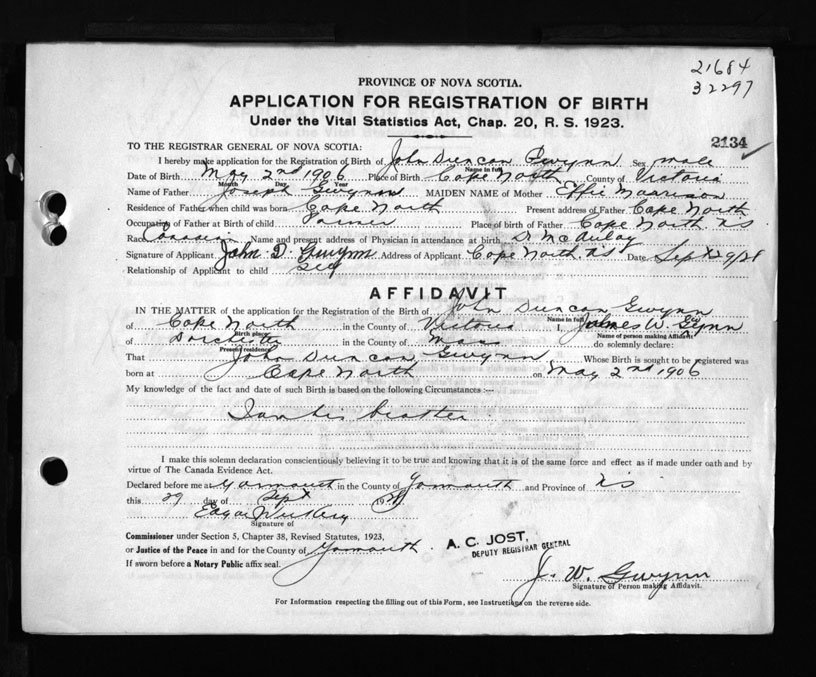 21684
32297
PROVINCE OF NOVA SCOTIA.
APPLICATION FOR REGISTRATION OF BIRTH
Under the Vital Statistics Act, Chap. 20, R. S. 1923.
2134
TO THE REGISTRAR GENERAL OF NOVA SCOTIA:
I hereby make application for the Registration of Birth of John Duncan Gwynn Sex male
Name in full
Date of Birth May 2nd 1906 Place of Birth Cape North County of Victoria
Month Day Year
Name of Father Joseph Gwynn MAIDEN NAME of Mother Effie
Residence of Father when child was born Cape North Present address of Father Cape North
Occupation of Father at Birth of child Farmer Place of birth of Father Cape North NS
Race Name and present address of Physician in attendance at birth Dr McAulay
Signature of Applicant John D. Gwynn Address of Applicant Cape North NS Date Sept 29/28
Relationship of Applicant to child self
AFFIDAVIT
IN THE MATTER of the application for the Registration of the Birth of John Duncan Gwynn
Name in full
of Cape North in the County of Victoria I, James W. Gwynn
Birth place Name of person making Affidavit
of Dorchester in the County of Mass do solemnly declare:
Present residence
That John Duncan Gwynn Whose Birth is sought to be registered was
born at Cape North on May 2nd 1906
My knowledge of the fact and date of such Birth is based on the following Circumstances :—
I am his brother
I make this solemn declaration conscientiously believing it to be true and knowing that it is of the same force and effect as if made under oath and by
virtue of The Canada Evidence Act.
Declared before me at Yarmouth in the County of Yarmouth and Province of NS
this 29 day of Sept 1928
Edgar
Signature of
Commissioner under Section 5, Chapter 38, Revised Statutes, 1923,
or Justice of the Peace in and for the County of Yarmouth.
If sworn before a Notary Public affix seal.
A. C. JOST,
DEPUTY REGISTRAR GENERAL
J. W. Gwynn
Signature of Person making Affidavit.
For Information respecting the filling out of this Form, see Instructions on the reverse side.